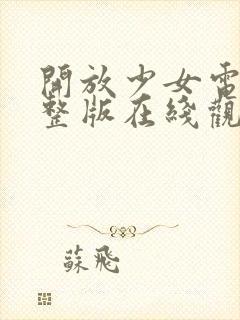 開放少女電
整版在綫觀
蘇飛